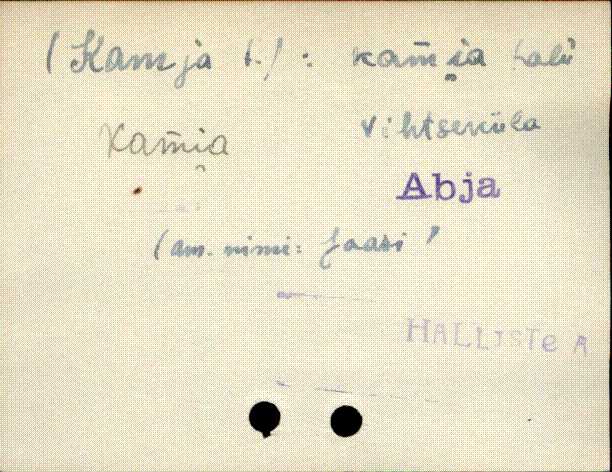 (Kamja t.) : kam̄i̮a talu
Kam̄i̮a
Vihtseküla
Abja
(am. nimi: Jaasi)
HALLISTE A